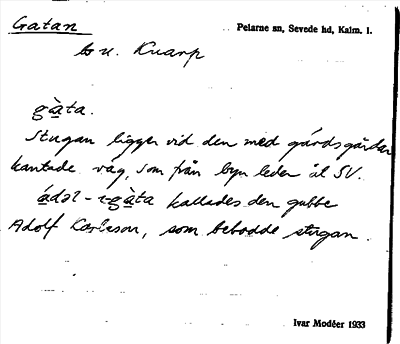 Gatan
Pelarne sn, Sevede hd, Kalm. l.
bs u. Knarp
gàta.
Stugan ligger vid den med gärdsgårdar
kantade väg, som från byn leder åt SV.
ádəl-i-gàta kallades den gubbe
Adolf Karlsson, som bebodde stugan.
Ivar Modéer 1933